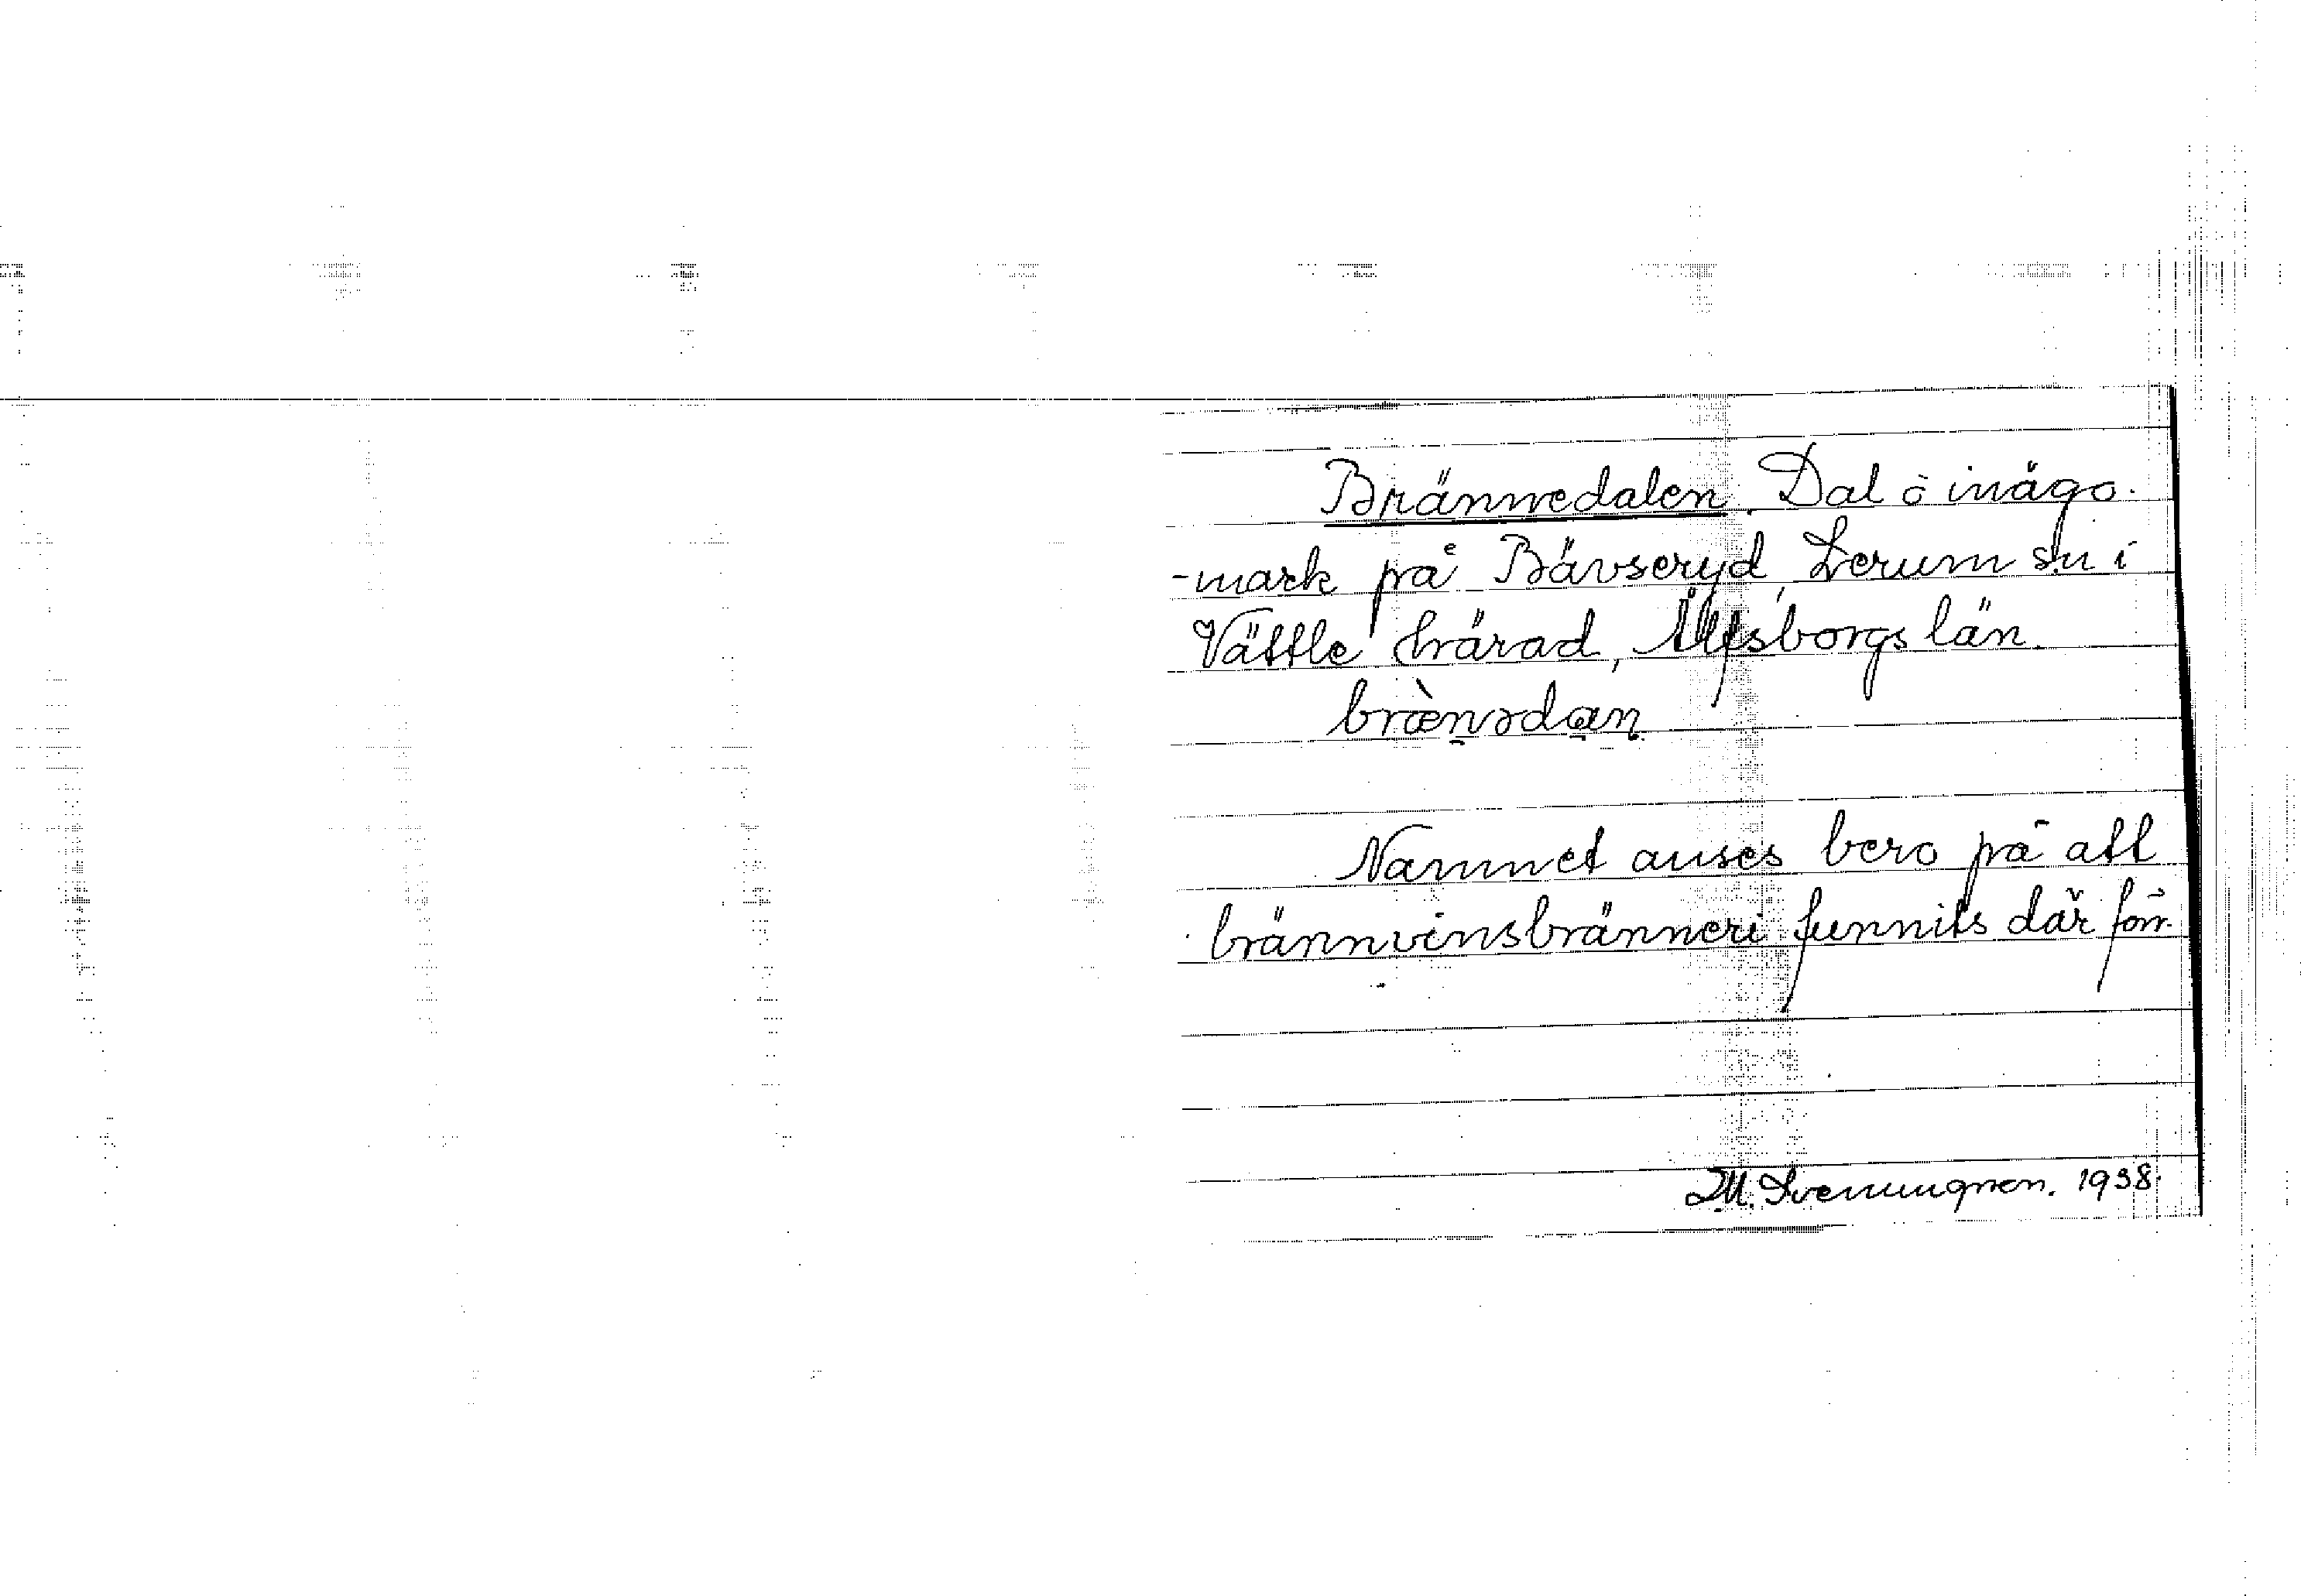 Brännedalen. Dal o inägo-
-mark på Bävseryd, Lerum sn i
Vättle härad, Älfsborgs län.
brænədan
Namnet anses bero på att
brännvinsbränneri funnits där förr.
M. Svenungson. 1938.